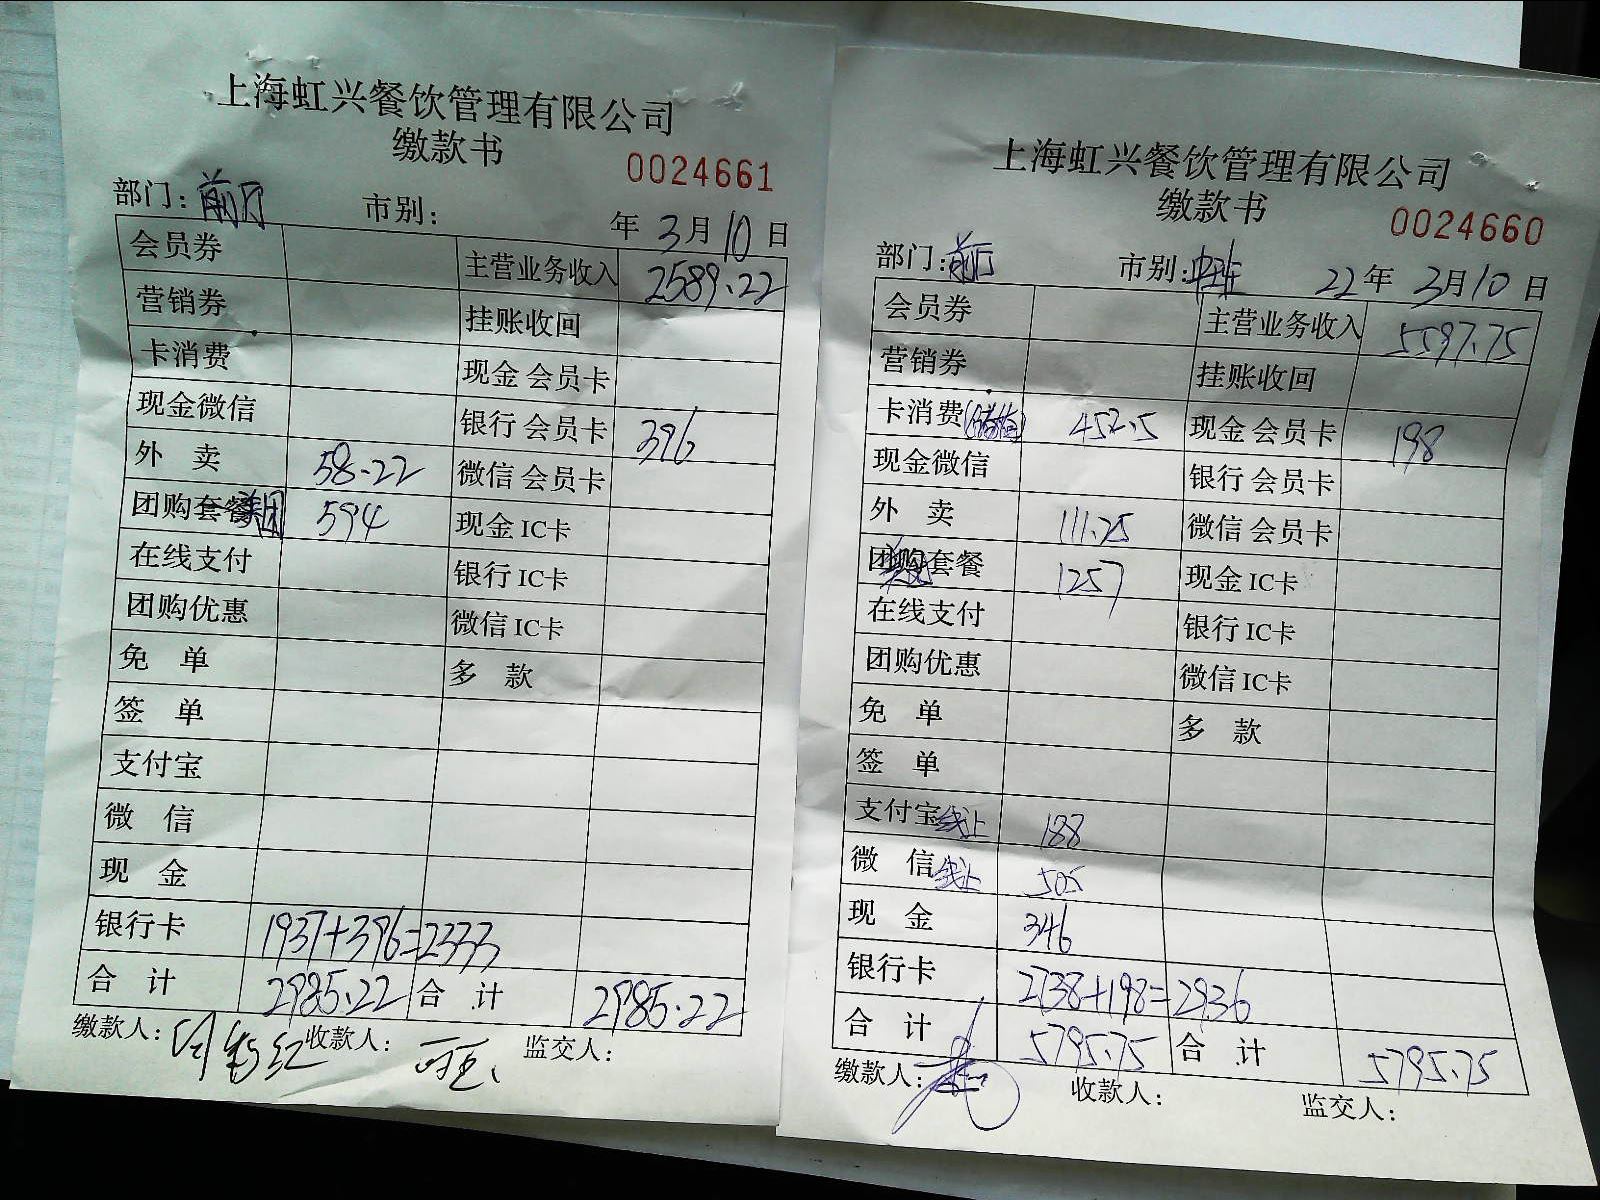 上海虹兴餐饮管理有限公司
缴款书
0024661
部门: 前厅 市别: 年 3月10日
会员券 主营业务收入 2589.22
营销券 挂账收回
卡消费 现金会员卡
现金微信 银行会员卡 396
外 卖 58.22 微信会员卡
团购套餐美团 594 现金IC卡
在线支付 银行IC卡
团购优惠 微信IC卡
免 单 多 款
签 单
支付宝
微 信
现 金
银行卡 1937+396=2333
合 计 2985.22 合 计 2985.22
缴款人: 收款人: 监交人:
上海虹兴餐饮管理有限公司
缴款书
0024660
部门: 前厅 市别: 22年 3月10日
会员券 主营业务收入 5597.75
营销券 挂账收回
卡消费(储值) 452.5 现金会员卡 198
现金微信 银行会员卡
外 卖 111.25 微信会员卡
团购套餐 1257 现金IC卡
在线支付 银行IC卡
团购优惠 微信IC卡
免 单 多 款
签 单
支付宝线上 188
微 信线上 505
现 金 346
银行卡 2738+198=2936
合 计 5795.75 合 计 5795.75
缴款人: 收款人: 监交人: